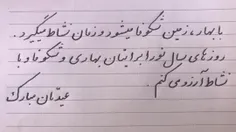 با بهار، زمین شکوفا میشود و زمان نشاط میگیرد.
روزهای سال نو را برایتان بهاری و شکوفا و با
نشاط آرزو می کنم.
عیدتان مبارک